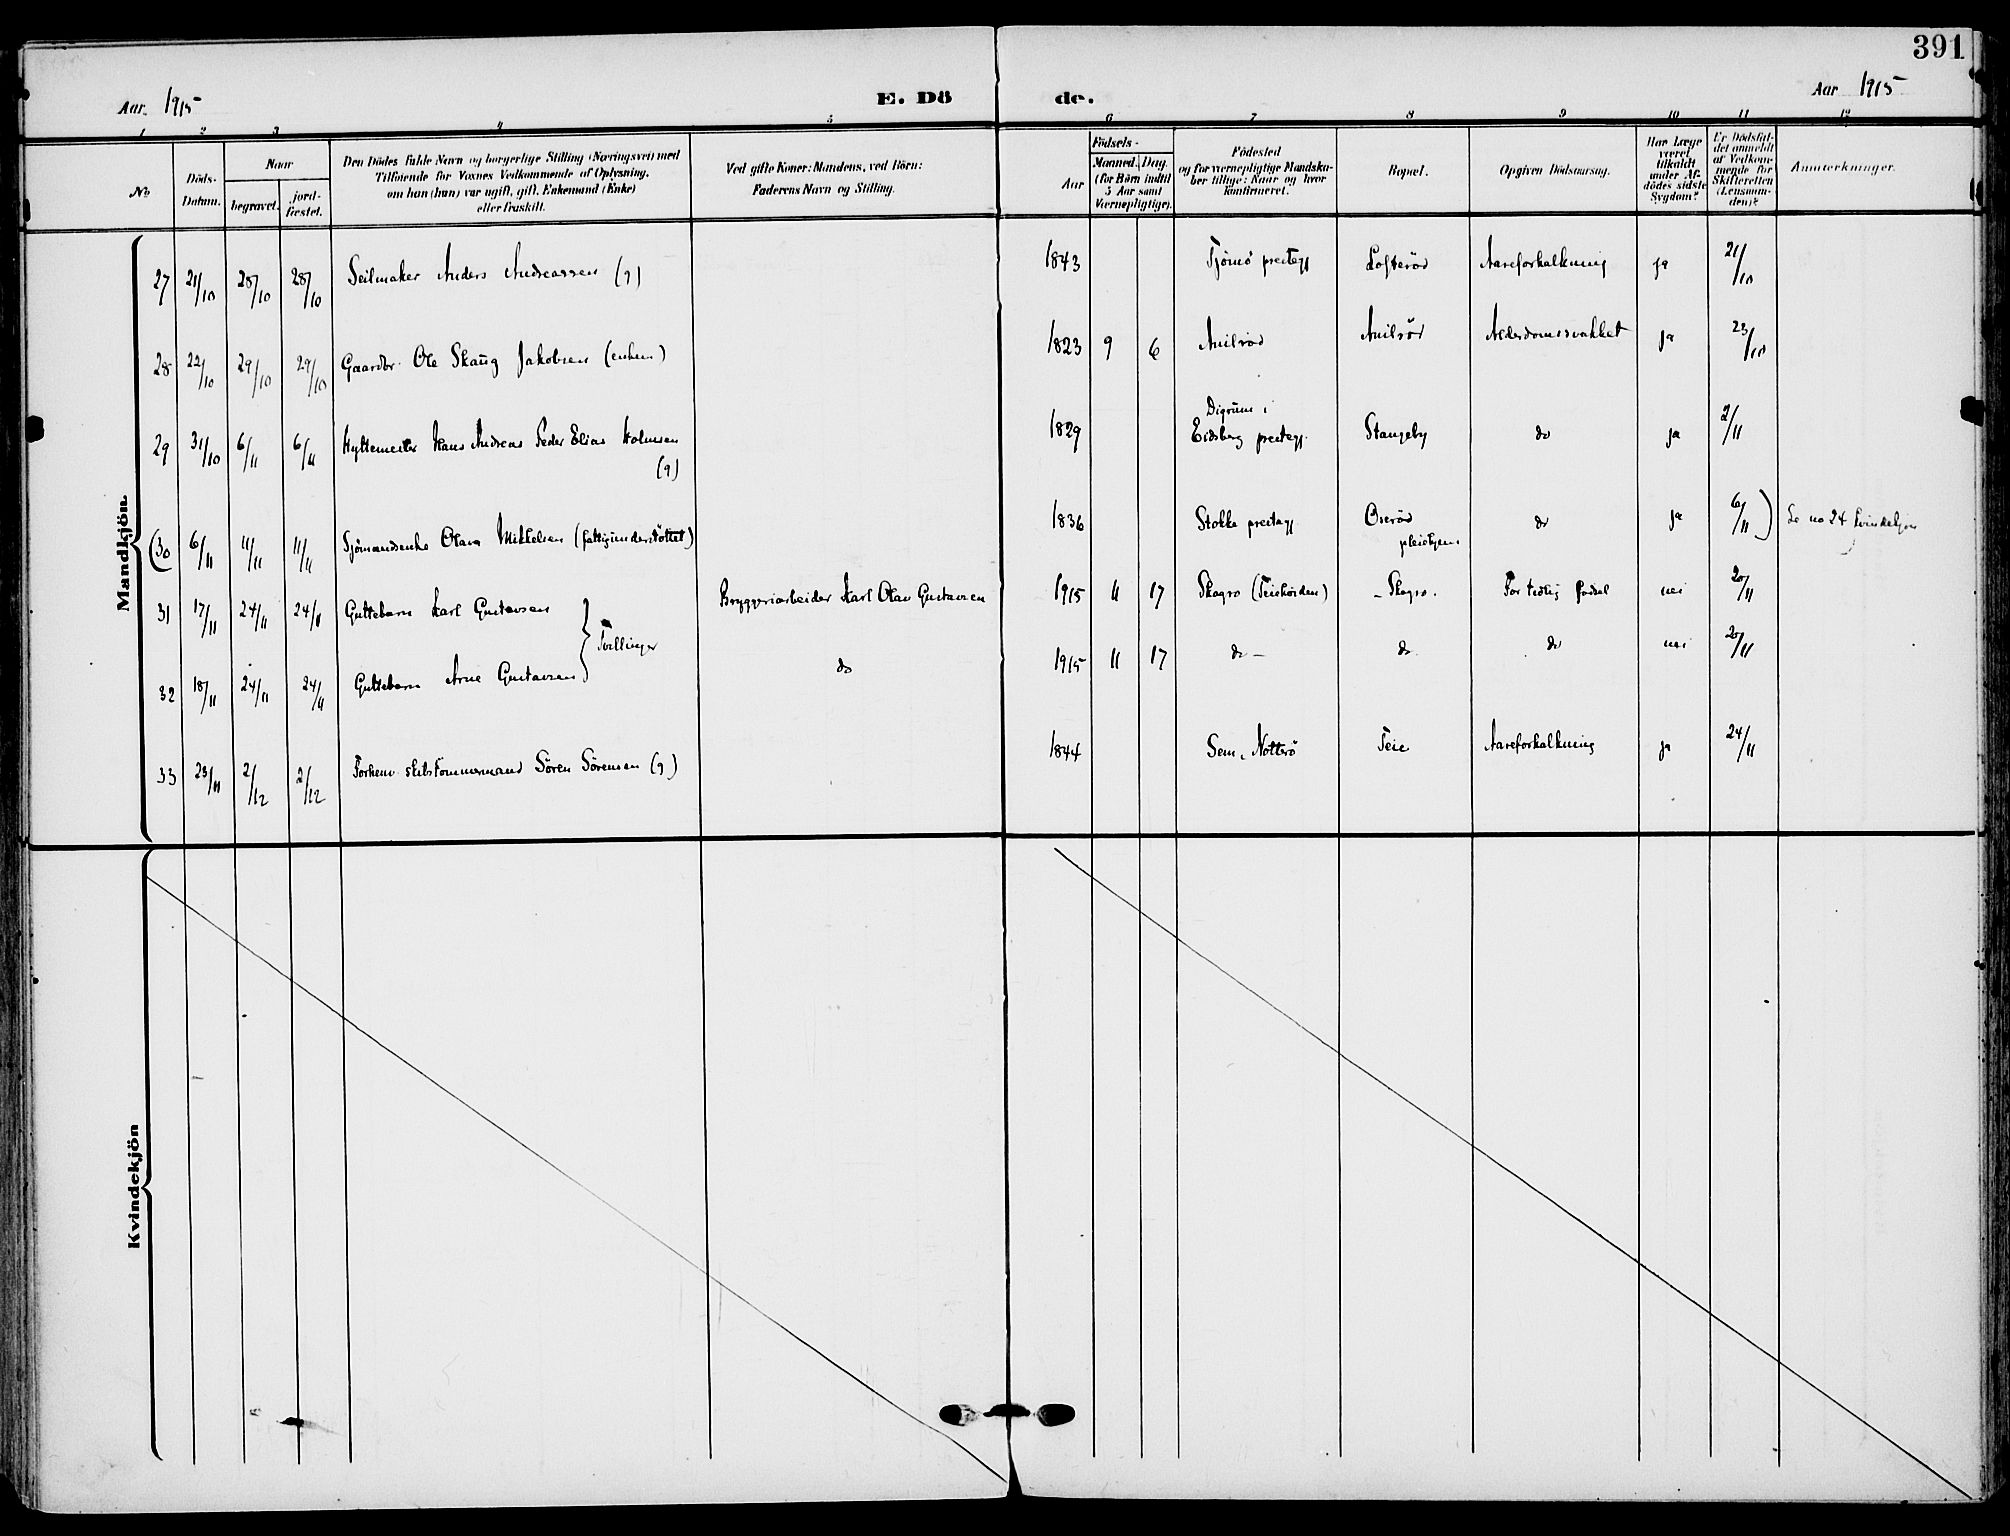 391
Aar. 1915 E. Dö de. Aar 1915
1 2 3 4 5 6 7 8 9 10 11 12
No
Döds-Datum.
Naar
begravet.
jord-fæstet.
Den Dödes fulde Navn og borgerlige Stilling (Næringsvei) med
Tilföiende for Voxnes Vedkommende af Oplysning,
om han (hun) var ugift, gift, Enkemand (Enke)
eller fraskilt.
Ved gifte Koner: Mandens, ved Börn:
Faderens Navn og Stilling.
Födsels-
Aar
Maaned. Dag.
(for Börn indtil
5 Aar samt
Værnepligtige).
Födested
og for værnepligtige Mandska-
ber tillige: Naar og hvor
konfirmeret.
Bopæl.
Opgiven Dödsaarsag.
Har Læge
været
tilkaldt
under Af-
dödes sidste
Sygdom?
Er Dödsfal-
det anmeldt
af Vedkom-
mende for
Skifteretten
(Lensman-
den)?
Anmærkninger.
Mandkjön.
27 21/10 28/10 28/10 Seilmaker Anders Andreassen (g) 1843 Tjömö prestegj Lofteröd Aareforkalkning ja 21/10
28 22/10 29/10 29/10 Gaardbr. Ole Skaug Jakobsen (enkem) 1823 9 6 Anilröd Anilröd Alderdomssvakhet ja 23/10
29 31/10 6/11 6/11 Hyttemester Hans Andreas Peder Elias Holmsen (g) 1829 Digrum i Eidsberg prestegj. Stangeby do ja 2/11
(30 6/11 11/11 11/11 Sjömandsenke Olava Mikkelsen (fattigunderstöttet) 1836 Stokke prestegj Oseröd pleiehjem do ja 6/11) Se no 24 kvindekjön
31 17/11 24/11 24/11 Guttebarn Karl Gustavsen } Tvillinger Bryggeriarbeider Karl Olav Gustavsen 1915 11 17 Skagro (Teiehöiden) - Skagro. For tidlig födsel nei 20/11
32 18/11 24/11 24/11 Guttebarn Arne Gustavsen do 1915 11 17 do - do do nei 20/11
33 23/11 2/12 2/12 Forhenv. skibstömmermand Sören Sörensen (g) 1844 Sem, Nötterö Teie Aareforkalkning ja 24/11
Kvindekjön